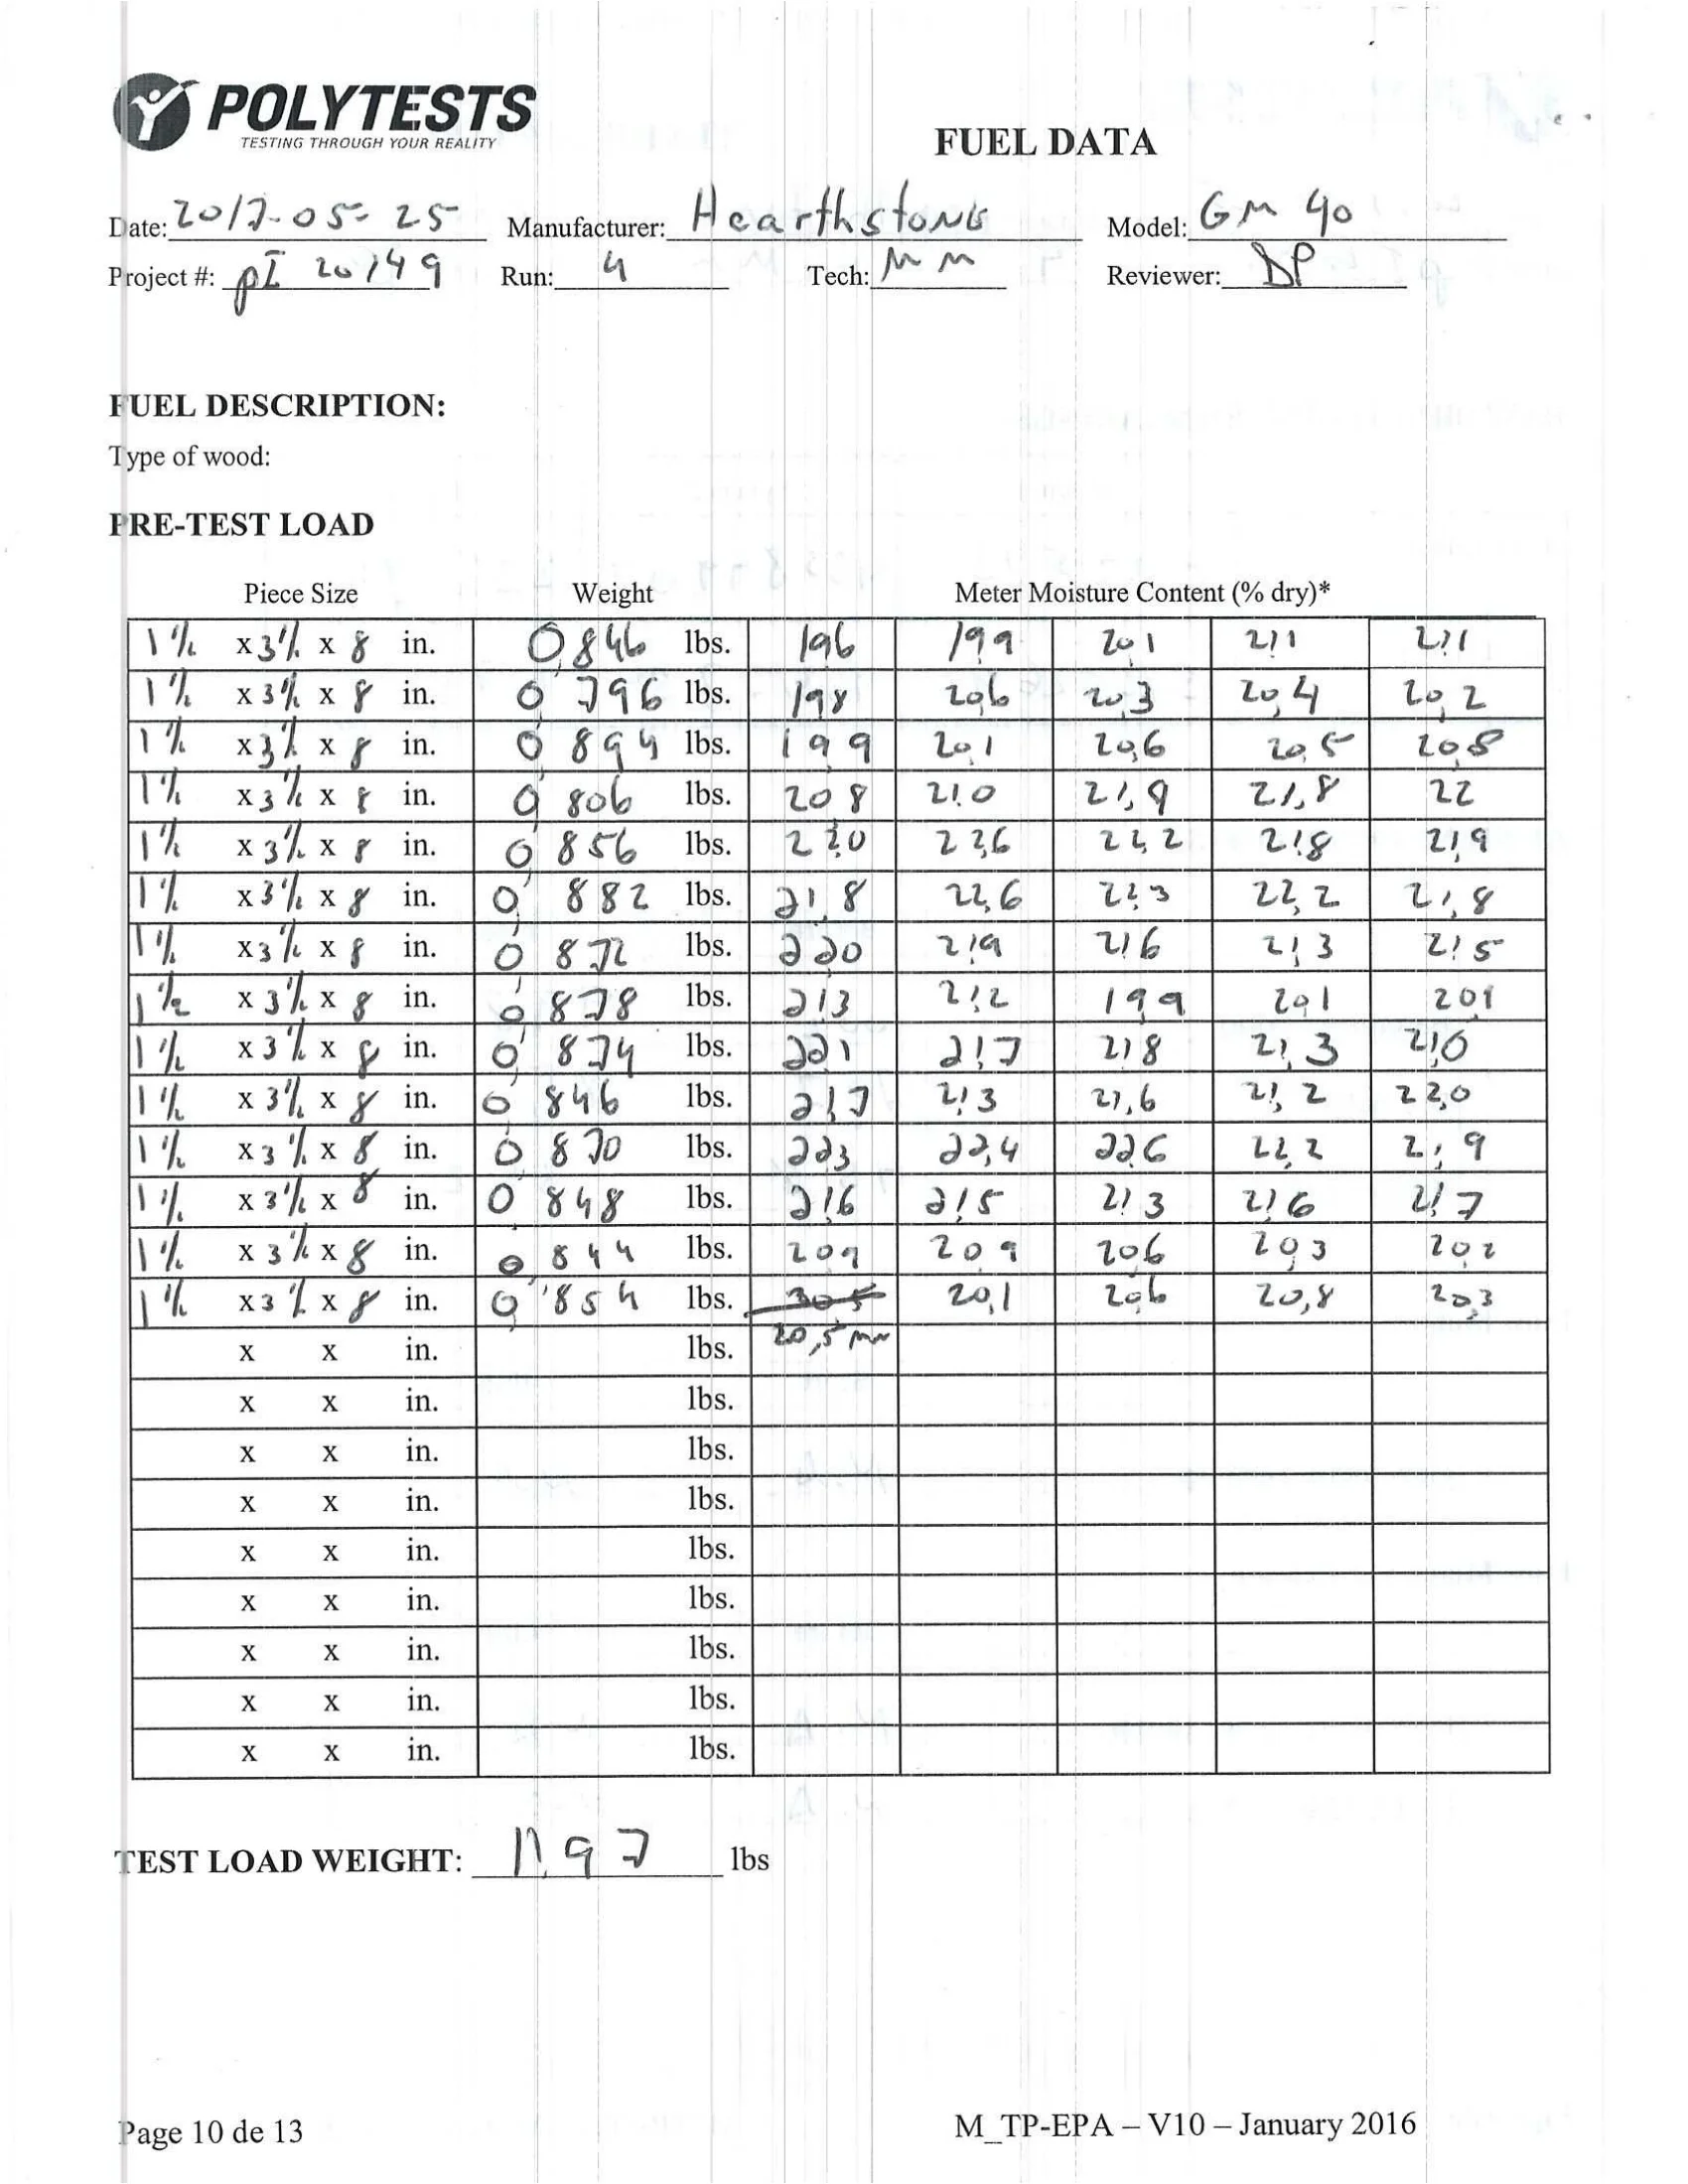 POLYTESTS
TESTING THROUGH YOUR REALITY
FUEL DATA
Date: 2017-05-25 Manufacturer: Hearthstone Model: GM 40
Project #: pI 20149 Run: 4 Tech: MM Reviewer: DP
FUEL DESCRIPTION:
Type of wood:
PRE-TEST LOAD
Piece Size Weight Meter Moisture Content (% dry)*
1 1/2 x 3 1/2 x 8 in. 0,846 lbs. 19,6 19,9 20,1 21,1 21,1
1 1/2 x 3 1/2 x 8 in. 0,796 lbs. 19,8 20,6 20,3 20,4 20,2
1 1/2 x 3 1/2 x 8 in. 0,894 lbs. 19,9 20,1 20,6 20,5 20,8
1 1/2 x 3 1/2 x 8 in. 0,806 lbs. 20,8 21,0 21,9 21,8 22
1 1/2 x 3 1/2 x 8 in. 0,856 lbs. 22,0 22,6 22,2 21,8 21,9
1 1/2 x 3 1/2 x 8 in. 0,882 lbs. 21,8 22,6 22,3 22,2 21,8
1 1/2 x 3 1/2 x 8 in. 0,872 lbs. 22,0 21,9 21,6 21,3 21,5
1 1/2 x 3 1/2 x 8 in. 0,878 lbs. 21,3 21,2 19,9 20,1 20,1
1 1/2 x 3 1/2 x 8 in. 0,874 lbs. 22,1 21,7 21,8 21,3 21,0
1 1/2 x 3 1/2 x 8 in. 0,846 lbs. 21,7 21,3 21,6 21,2 22,0
1 1/2 x 3 1/2 x 8 in. 0,870 lbs. 22,3 22,4 22,6 22,2 21,9
1 1/2 x 3 1/2 x 8 in. 0,848 lbs. 21,6 21,5 21,3 21,6 21,7
1 1/2 x 3 1/2 x 8 in. 0,844 lbs. 20,9 20,9 20,6 20,3 20,2
1 1/2 x 3 1/2 x 8 in. 0,854 lbs. 30,5 20,1 20,6 20,8 20,3
x x in. lbs. 20,5 mm
x x in. lbs.
x x in. lbs.
x x in. lbs.
x x in. lbs.
x x in. lbs.
x x in. lbs.
x x in. lbs.
x x in. lbs.
TEST LOAD WEIGHT: 11,97 lbs
Page 10 de 13 M_TP-EPA – V10 – January 2016